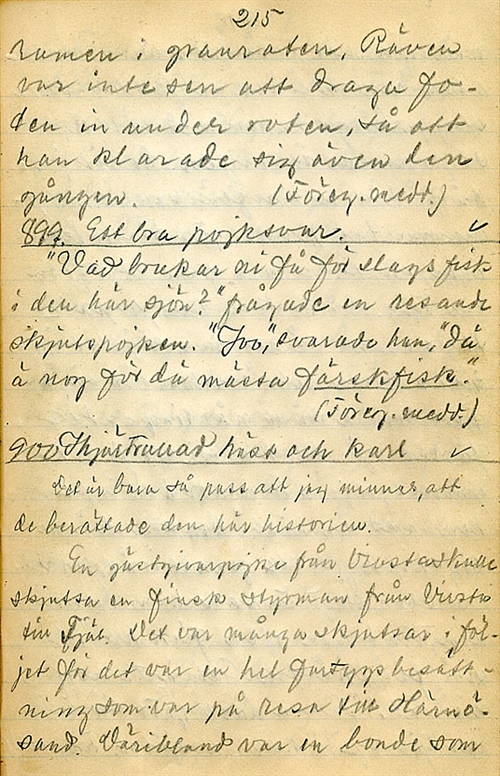 215
ramen i granroten. Räven
var inte sen att draga fo-
ten in under roten, så att
han klarade sig även den
gången. (Föreg. medd.)
899. Ett bra pojksvar.
"Vad brukar ni få för slags fisk
i den här sjön?" frågade en resande
skjutspojken. "Joo," svarade han, "dä
ä nog för dä mästa färskfisk."
(Föreg. medd.)
900 häst och karl
Det är bara så pass att jag minnes, att
de berättade den här historien.
En gästgivarpojke från Vivsta skulle
skjutsa en finsk styrman från Vivsta
till Fjäl. Det var många skjutsar i föl-
jet för det var en hel fartygsbesätt-
ning som var på resa till Härnö-
sand. Däribland var en bonde som